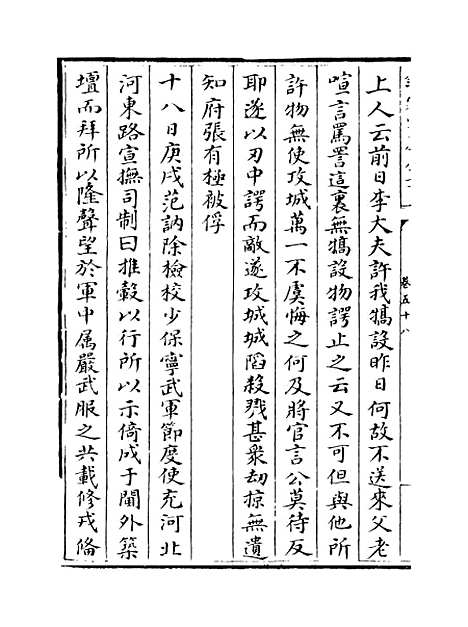 卷五十八
上人云前日李大夫許我犒設昨日何故不送來父老
喧言罵詈這裏無犒設物諤止之云又不可但與他所
許物無使攻城萬一不虞悔之何及將官言公莫待反
耶遂以刃中諤而敵遂攻城城䧟殺戮甚衆劫掠無遺
知府張有極被俘
十八日庚戌范訥除檢校少保寧武軍節度使充河北
河東路宣撫司制曰推轂以行所以示倚成于閫外築
壇而拜所以隆聲望於軍中属嚴武服之共載修戎備